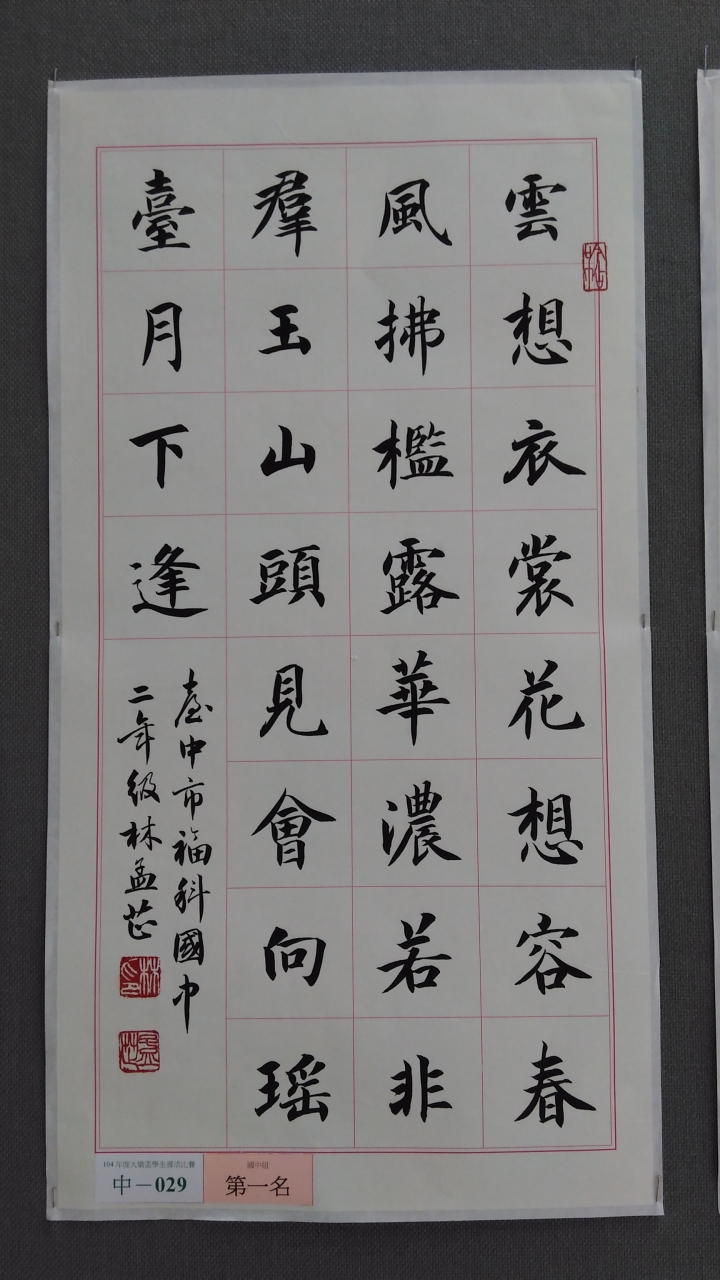 雲想衣裳花想容春
風拂檻露華濃若非
羣玉山頭見會向瑤
臺月下逢
臺中市福科國中
二年級林孟芷
104 年度大墩盃學生書法比賽
中－029
國中組
第一名